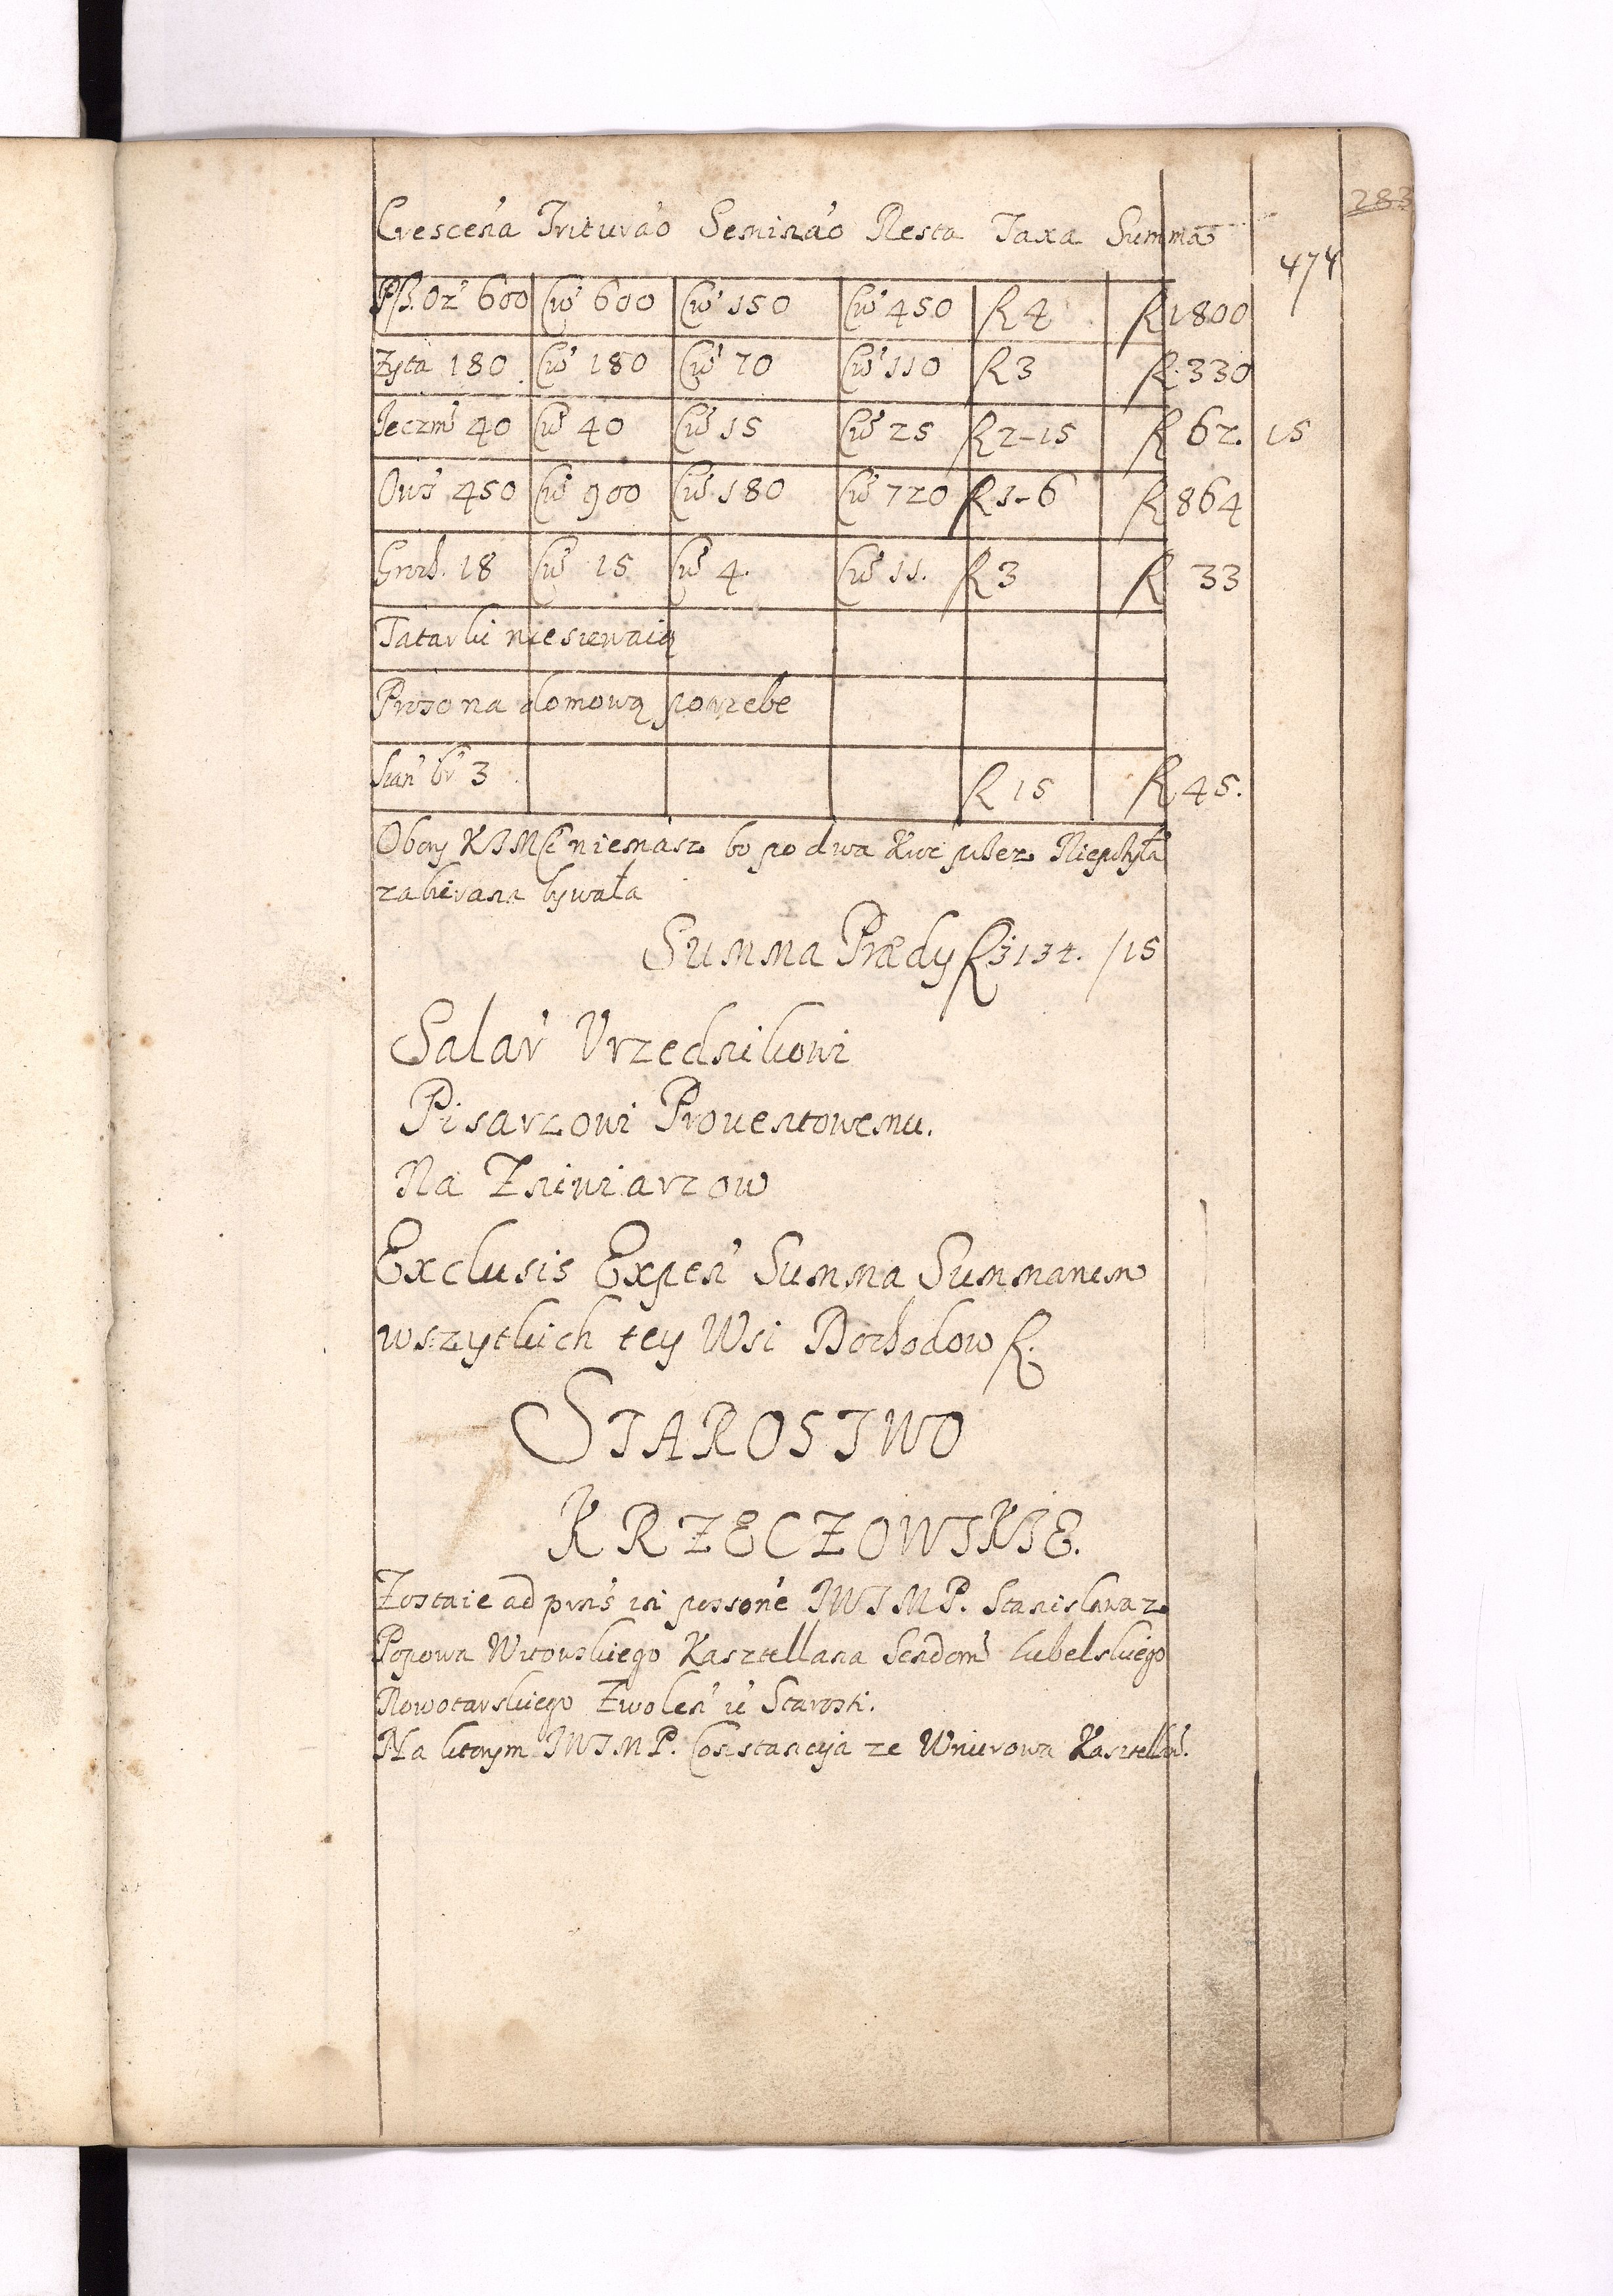 283
474
Crescen̄a Trituraō Seminaō Resta Taxa Summa
Psz. Oz' 600 Ćw' 600 Ćw' 150 Ćw' 450 fl 4 fl 1800
Zyta 180 Ćw' 180 Ćw' 70 Ćw' 110 fl 3 fl. 330
Jeczm' 40 Ćw' 40 Ćw' 15 Ćw' 25 fl 2-15 fl 62. 15
Ows' 450 Ćw' 900 Ćw' 180 Ćw' 720 fl 1-6 fl 864
Groch. 18 Ćw' 15 Ćw' 4. Ćw' 11. fl 3 fl 33
Tatarki nie siewaią
Proso na domową potrzebe
Sian' br' 3 fl 15 fl 45.
Obory niemasz bo po dwa
zabierana bywała
Summa Prædy fl 3134. /15
Salar' Vrzednikowi
Pisarzowi Prouentowemu.
Na Zniwiarzow
Exclusis Expen' Summa Summarum
wszytkich tey Wsi Dochodow fl.
STAROSTWO
KRZECZOWSKIE.
Zostaie ad prns' in possone' JWJMP. Stanisława z
Popowa Witowskiego Kasztellana Sendom' Lubelskiego
Nowotarskiego Zwolen' ić Starosti.
Na ktorym JWJMP. Constancyja ze Wniurowa Kasztellan'.